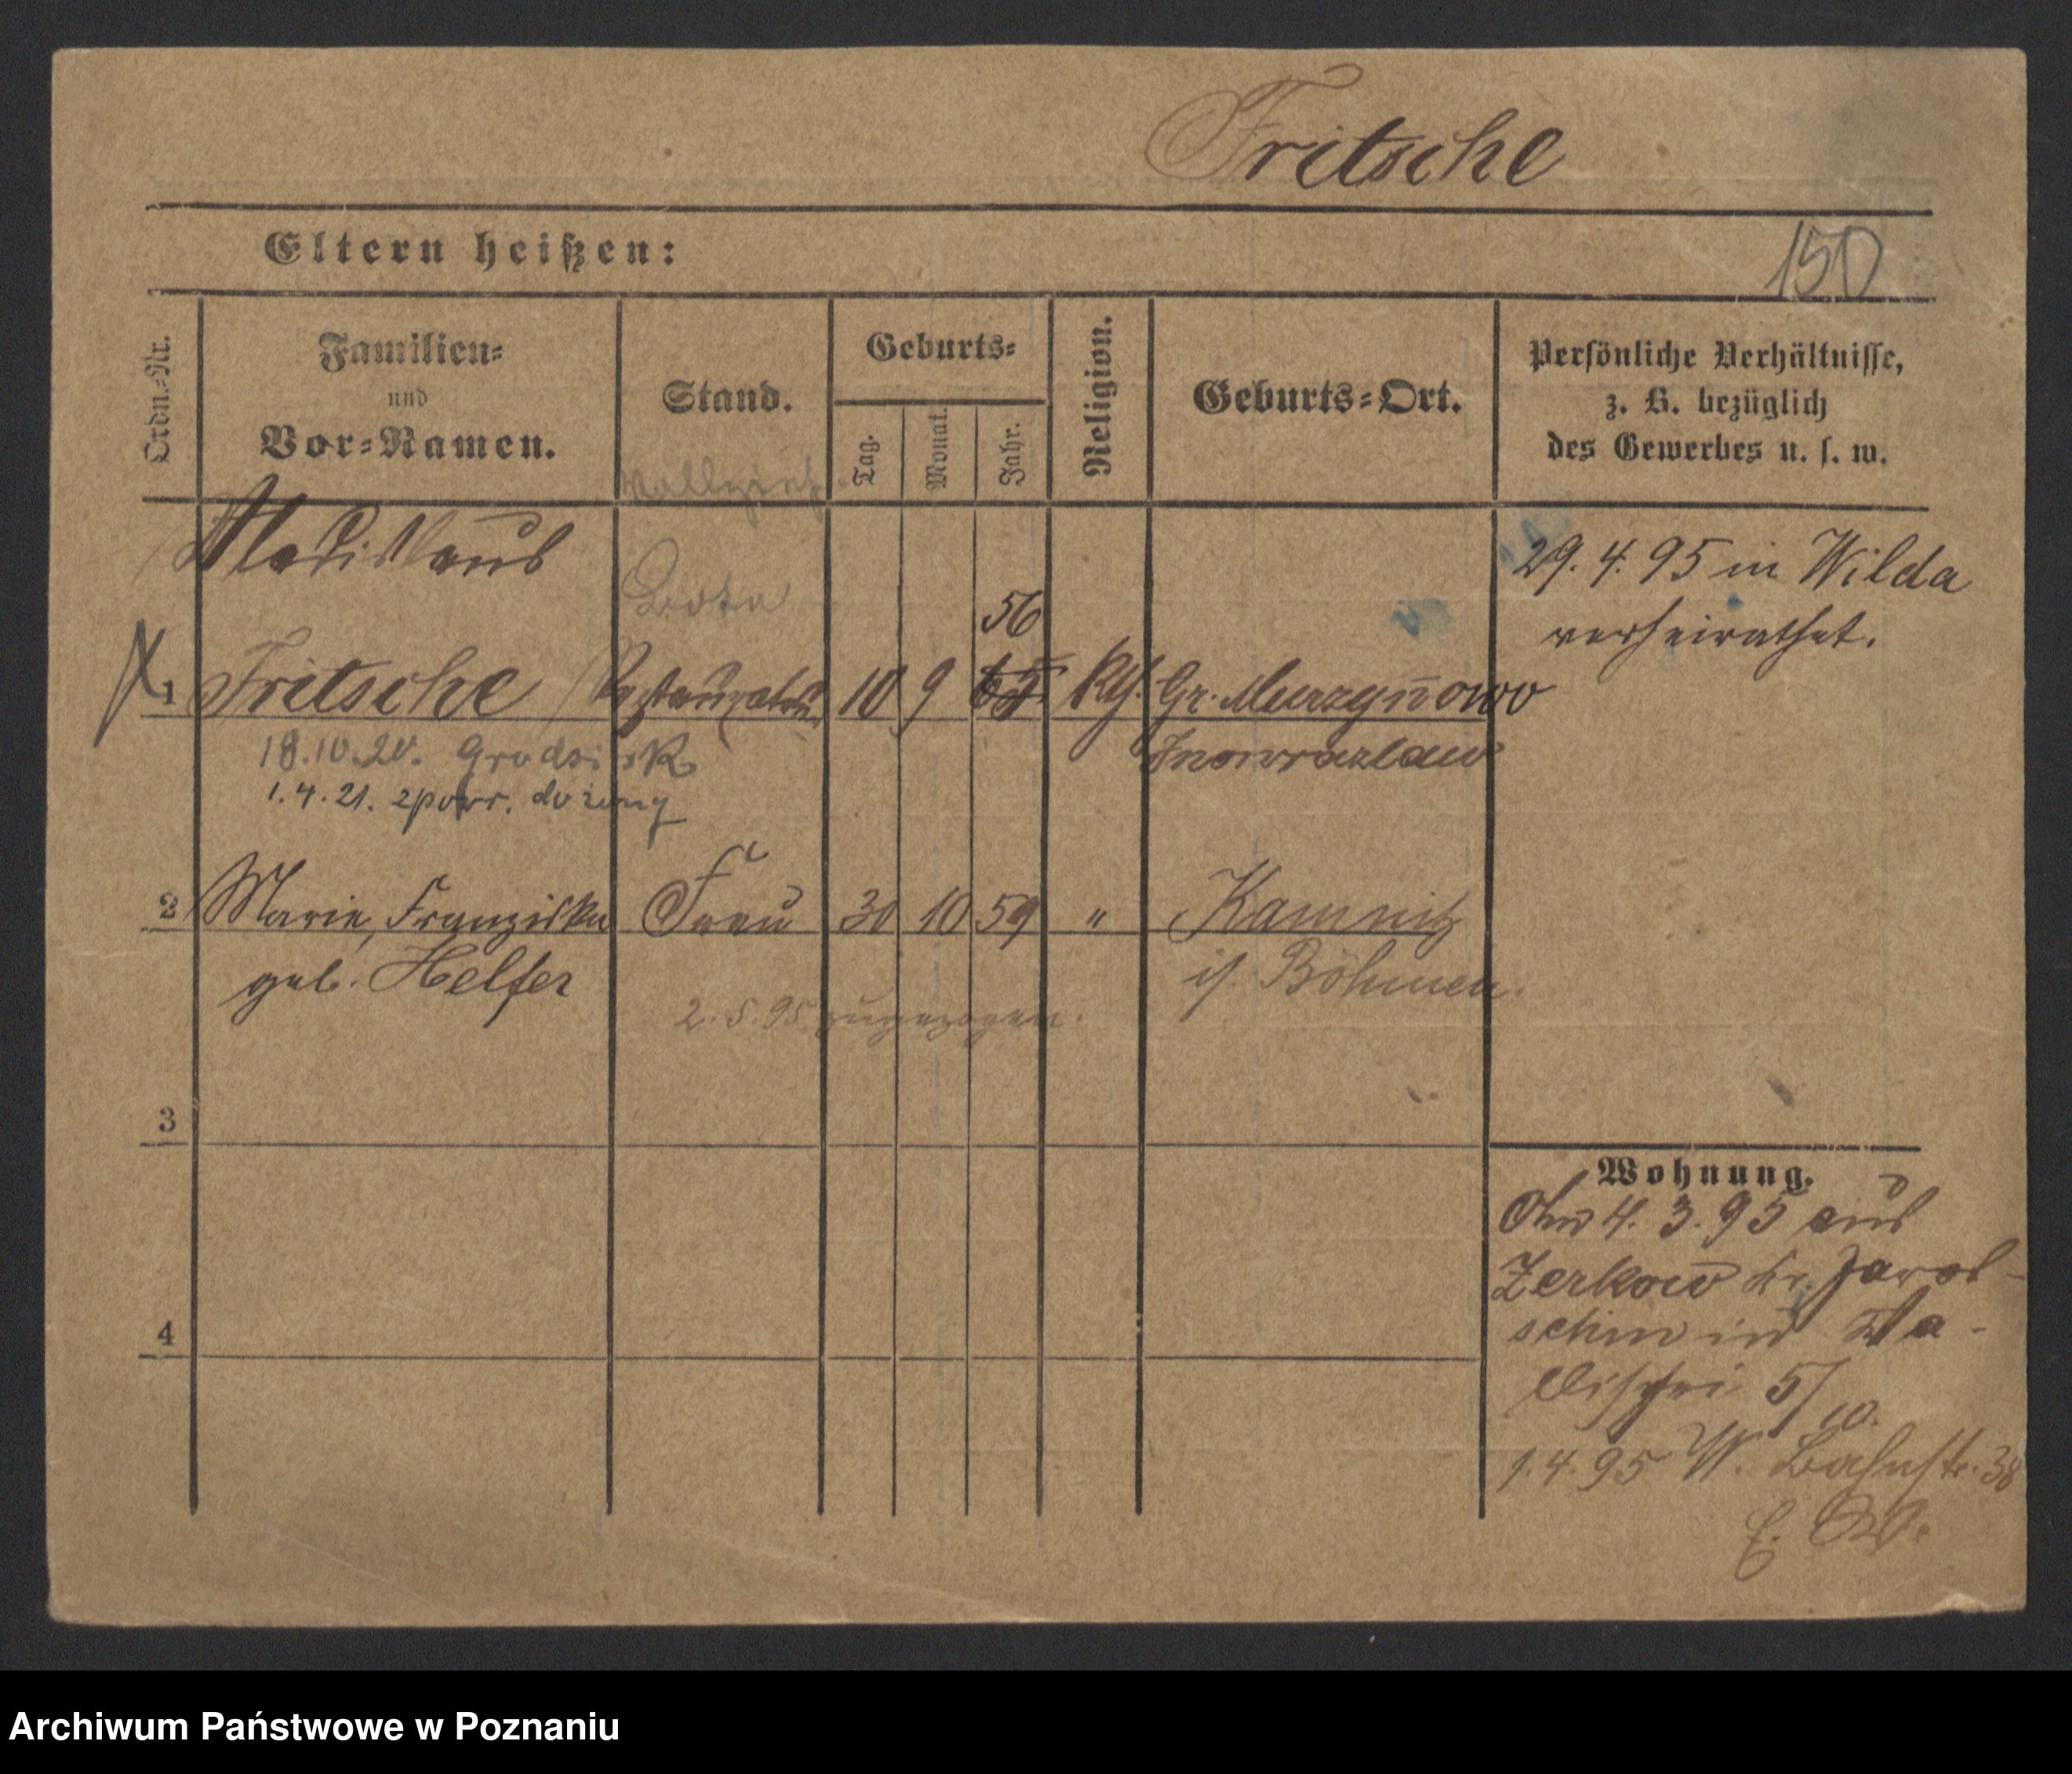 Fritsche
Eltern heißen:
150
Ordn.-Nr.
Familien-
und
Vor-Namen.
Stand.
Geburts-
Tag.
Monat.
Jahr.
Religion.
Geburts-Ort.
Persönliche Verhältnisse,
z. B. bezüglich
des Gewerbes u. s. w.
Wladislaus
Bote
56
1 Fritsche Restaurateur 10 9 65 Kth. Gr. Murzynowo
Inowrazlaw
18.10.20. Grodzisk
1.4.21. zpowr. do żony
29. 4. 95 in Wilda
verheirathet.
2 Marie, Franziska Frau 30 10 59 " Kamnitz
geb. Helfer
i/ Böhmen.
2. 5. 95 zugezogen.
3
4
Wohnung.
4. 3. 95 aus
Zerkow Kr. Jarot-
schin in Wa-
lischei 5/10.
1. 4. 95 W. Bahnstr. 38